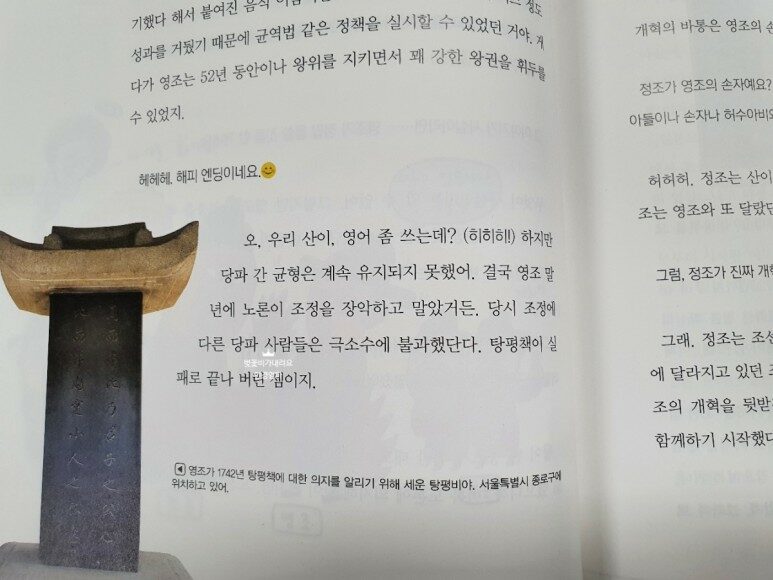 성과를 거뒀기 때문에 균역법 같은 정책을 실시할 수 있었던 거야. 게
다가 영조는 52년 동안이나 왕위를 지키면서 꽤 강한 왕권을 휘두를
수 있었지.
헤헤헤. 해피 엔딩이네요.😊
오, 우리 산이, 영어 좀 쓰는데? (히히히!) 하지만
당파 간 균형은 계속 유지되지 못했어. 결국 영조 말
년에 노론이 조정을 장악하고 말았거든. 당시 조정에
다른 당파 사람들은 극소수에 불과했단다. 탕평책이 실
패로 끝나 버린 셈이지.
벚꽃비가내려요
◀ 영조가 1742년 탕평책에 대한 의지를 알리기 위해 세운 탕평비야. 서울특별시 종로구에
위치하고 있어.
개혁의 바통은 영조의 손
정조가 영조의 손자예요?
아들이나 손자나 허수아비
허허허. 정조는 산이
조는 영조와 또 달랐던
그럼, 정조가 진짜 개혁
그래. 정조는 조선
에 달라지고 있던 조
조의 개혁을 뒷받
함께하기 시작했다